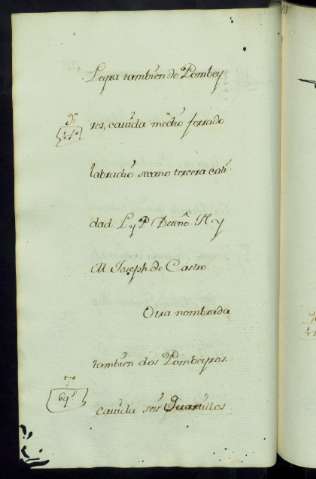 Legra tambien de Pombey
res, cavida medio ferrado
labradio secano tercera cali
dad L. y P. N. y
M Joseph de Castro
Otra nombrada
tambien dos Pombeyros.
cavida seis Quartillos